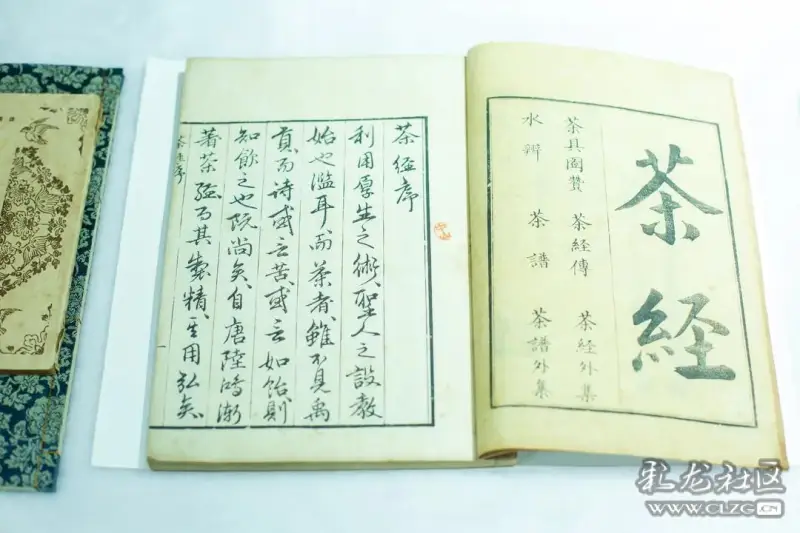 茶経
茶具圖贊 茶経傳 茶経外集
水辨 茶譜 茶譜外集
茶經序
利用厚生之術聖人之設教
始也濫耳而茶者雖不見禹
貢而詩或云苦或云如飴則
知飲之也既尚矣自唐陸鴻漸
著茶經而其製精其用弘矣
茶經序
彩龙社区
WWW.CLZG.CN